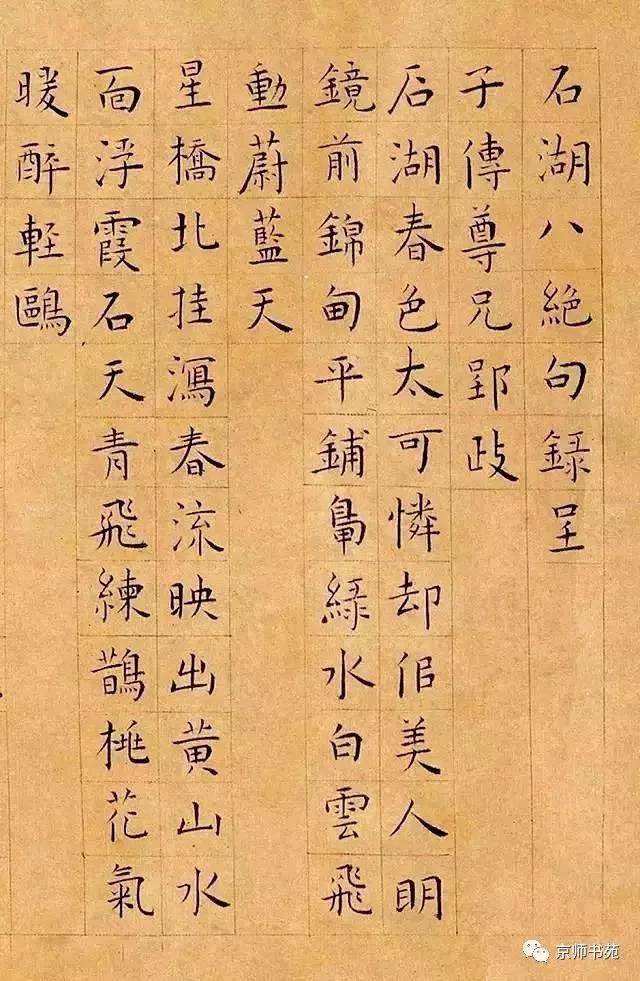 石湖八絶句録呈
子傳尊兄郢政
石湖春色太可憐却佀美人眀
鏡前錦甸平鋪鳧緑水白雲飛
動蔚藍天
星橋北挂瀉春流映出黄山水
面浮霞石天青飛練鵲桃花氣
暖醉軽鷗
京师书苑